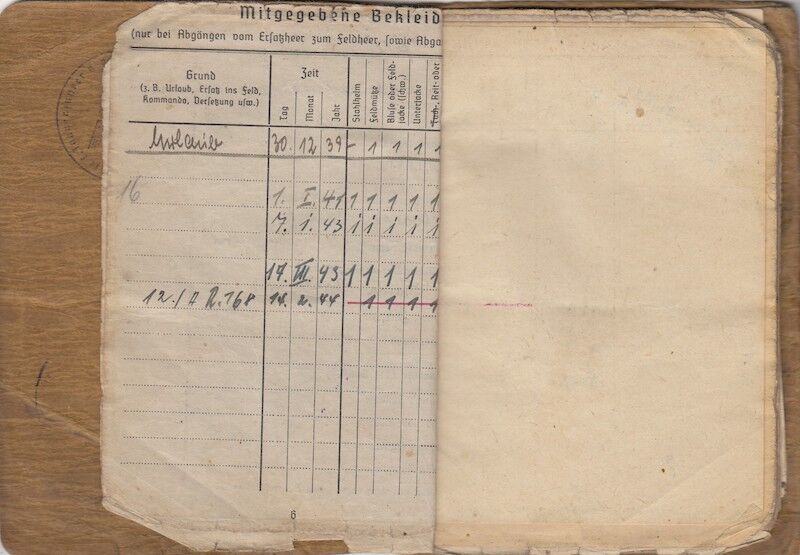 Mitgegebene Bekleid
(nur bei Abgängen vom Ersatzheer zum Feldheer, sowie Abga
Grund
(z. B. Urlaub, Ersatz ins Feld,
Kommando, Versetzung usw.)
Zeit
Tag
Monat
Jahr
Stahlhelm
Feldmütze
Bluse oder Feld-
jacke (schw.)
Unterjacke
Tuch-, Reit- oder
Urlaub 30. 12 39 - 1 1 1 1
16
1. I. 41 1 1 1 1 1
7. i. 43 i i i i i
17. III. 43 1 1 1 1 1
12./A.R.768 14. 2. 44 1 1 1 1
6